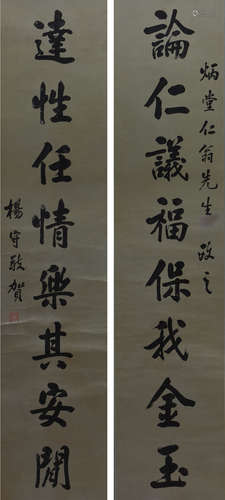 炳堂仁翁先生 政之
論仁議福保我金玉
達性任情樂其安閒
楊守敬賀